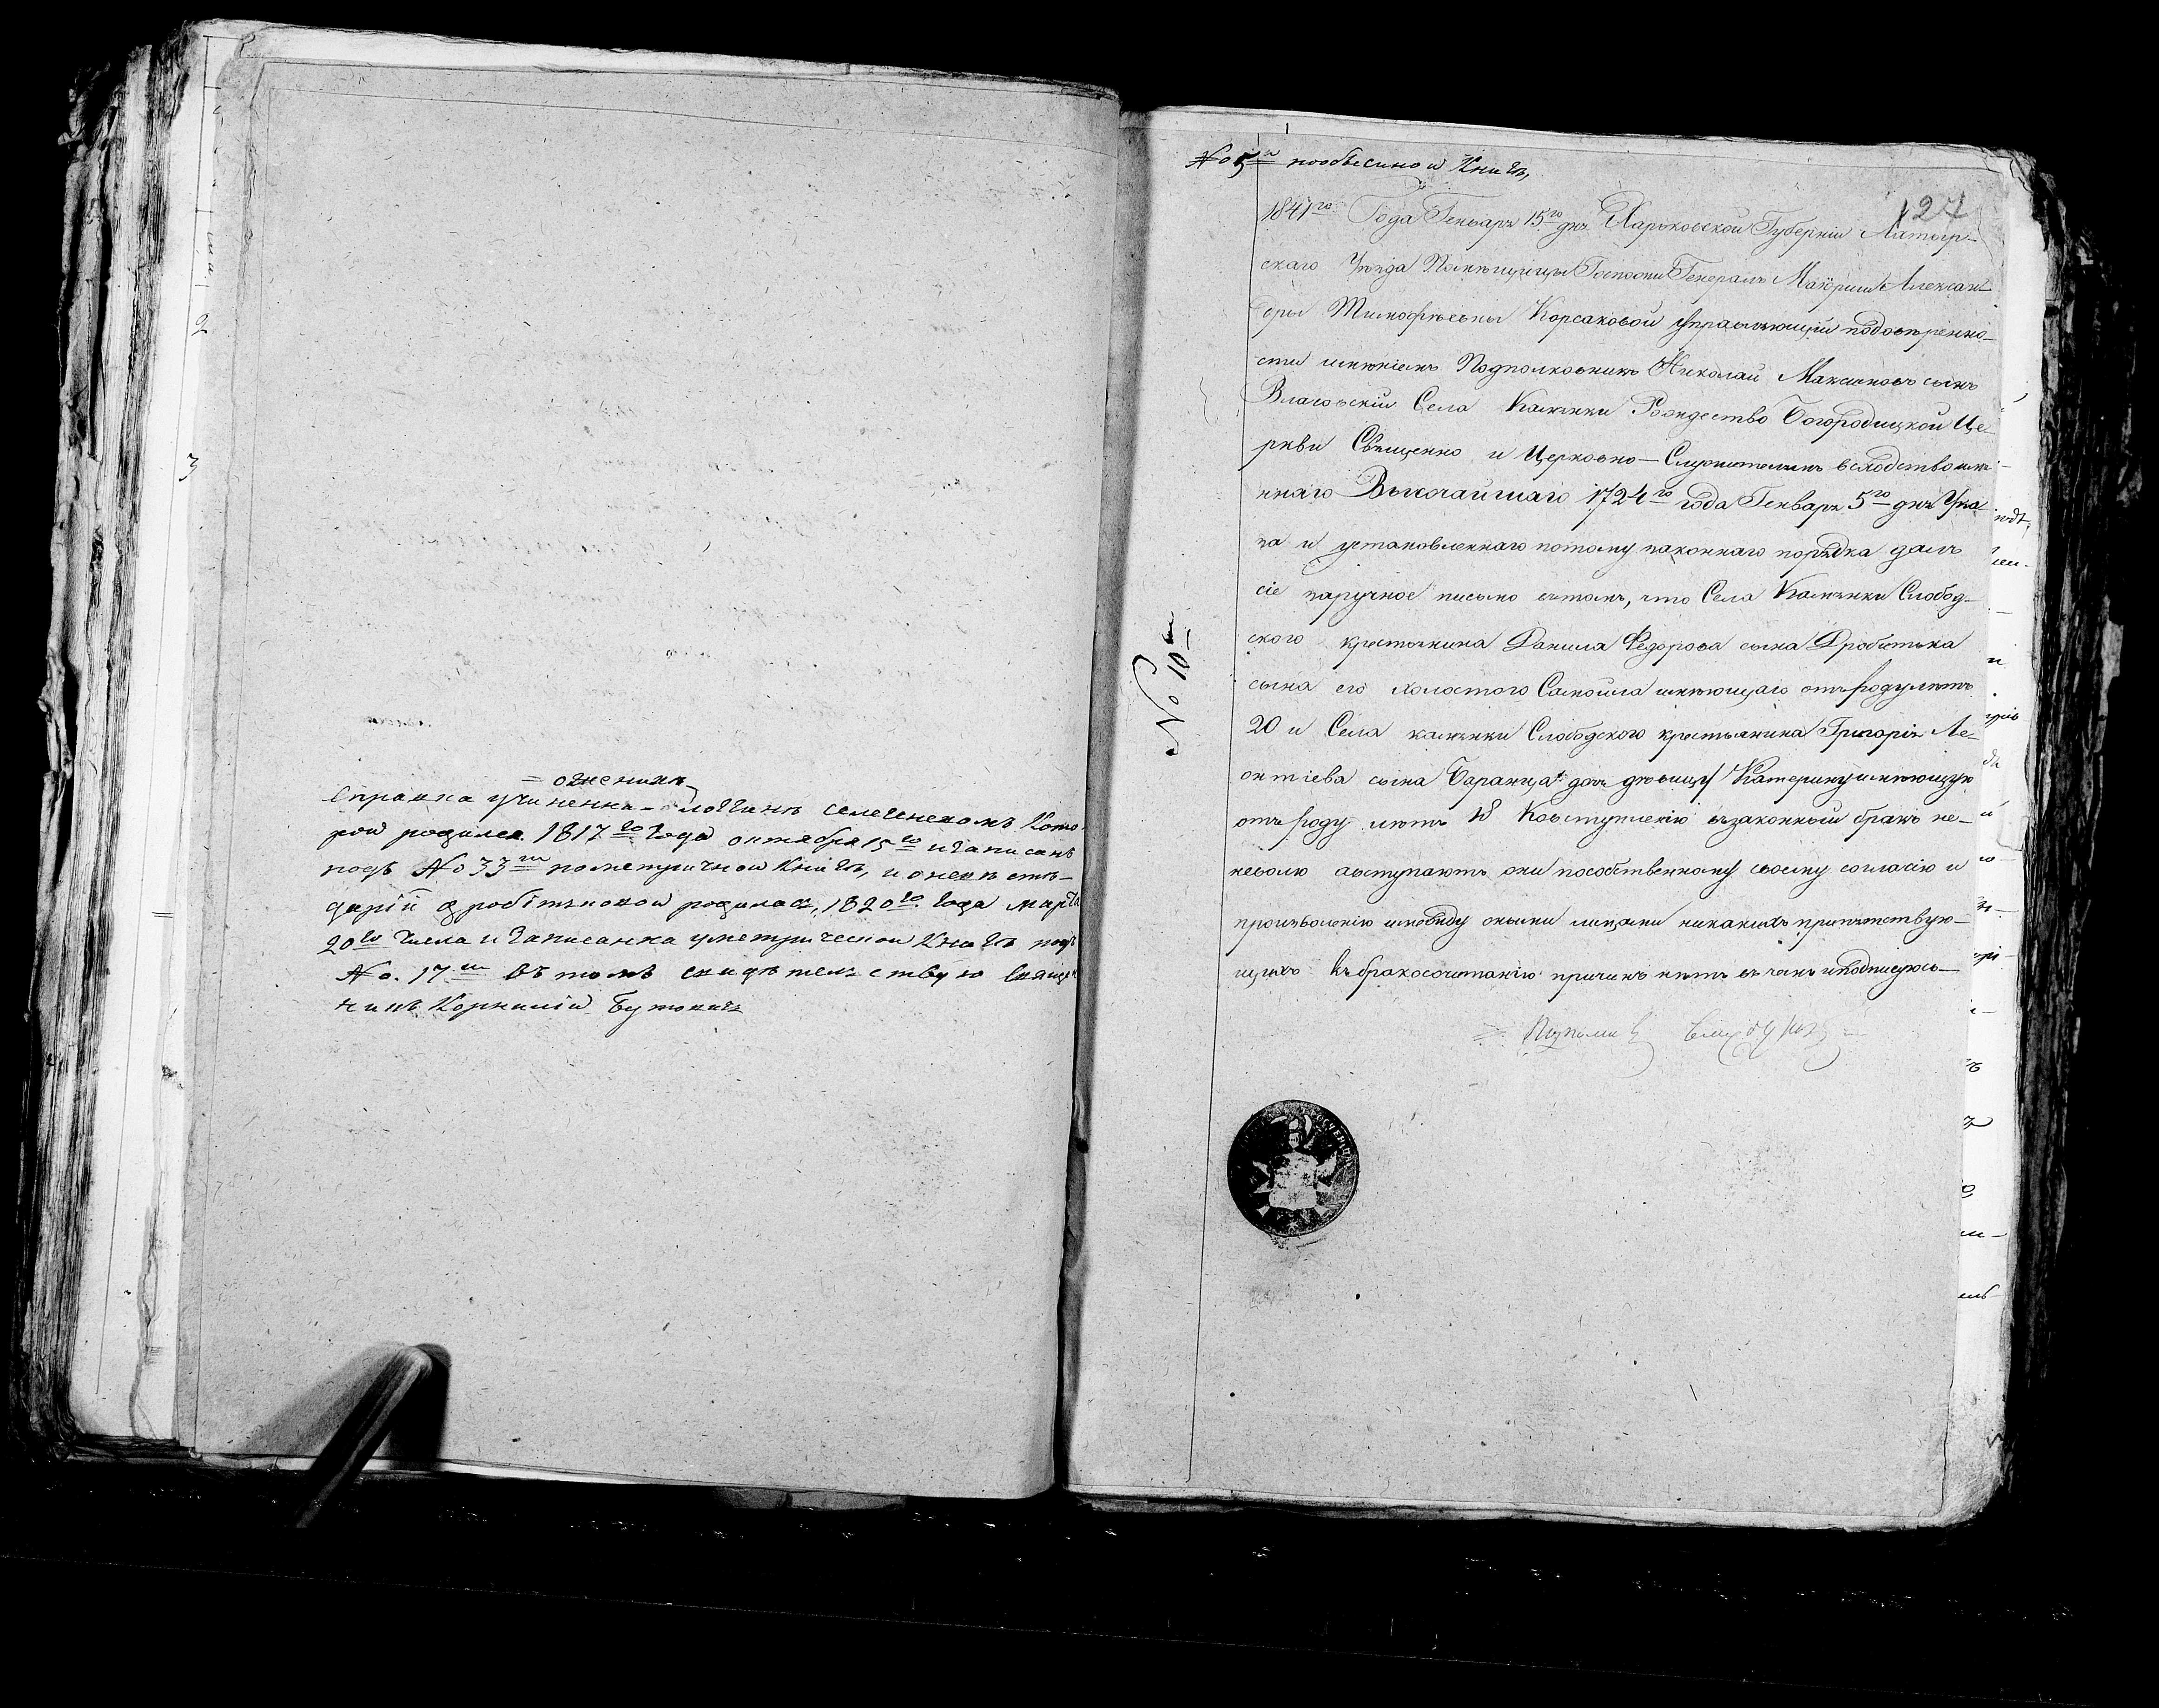 = о женихѣ
Справка учиненна – Логинѣ Селешнекомъ Кото
рой родился 1817го Года октября 15го и записанъ
подъ No 33м по метричной Книгѣ, и о невѣстѣ –
Дарiи Дробiтьковой родилась, 1820го Года Марта
20го Числа и Записанна у метрической Книгѣ подъ
No. 17м въ томъ свидѣтельствую Священ
никъ Корнилiй Бутович
No 5й по обысkной Книгѣ,
127
1847го Года Генваря 15го дня Харьковской Губернiи Ахтыр–
скаго Уѣзда Помѣщицы Госпожи Генералъ Маiорши Алексан
дры Тимофѣевны Корсаковой Управляющiй по довѣренно–
сти имѣнiемъ Подполковникъ Николай Максимовъ сынъ
Села Камянки Рождество Богородицкой Це–
ркви Священно и Церковно–Служителямъ въ сходство имян–
ннаго Высочайшаго 1724го года Генваря 5го дня Ука
за и установленнаго потому законнаго порядка далъ
сiе заручное письмо въ томъ, что Села Камянки Слобод–
ского крестьянина Данила Федорова сына Дробiтька
сына его холостого Самойла имѣющаго отъ роду лѣтъ
20 и Села камянки Слободского крестьянина Григорiя Ле–
онтiева сына Баранца дочь дѣвицу Катерину имѣющую
отъ роду лѣтъ 18 Ко вступленiю въ законный бракъ не–
неволю а вступаютъ они по собственному своему согласiю и
произволенiю и между оными лицами никакихъ препятствую–
щихъ къ бракосочитанiю причинъ нѣтъ въ чемъ и подписуюсь–
No 10й